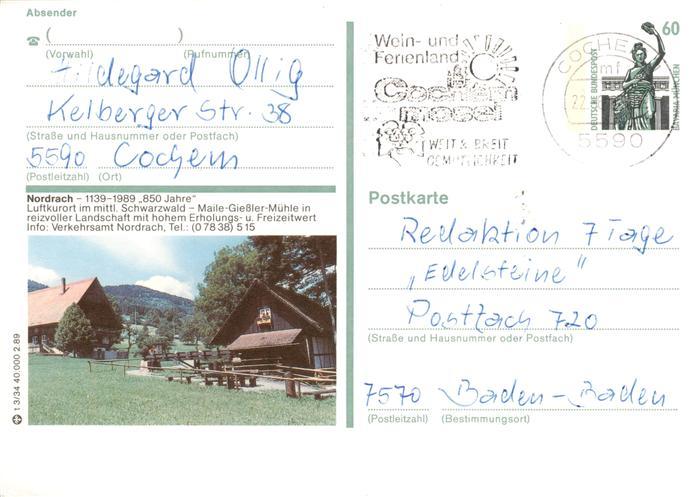 Absender
☎ ( )
(Vorwahl) (Rufnummer)
Hildegard Ollig
Kelberger Str. 38
(Straße und Hausnummer oder Postfach)
5590 Cochem
(Postleitzahl) (Ort)
Nordrach – 1139–1989 „850 Jahre“
Luftkurort im mittl. Schwarzwald – Maile-Gießler-Mühle in
reizvoller Landschaft mit hohem Erholungs- u. Freizeitwert
Info: Verkehrsamt Nordrach, Tel.: (0 78 38) 5 15
1 3/34 40 000 2.89
Wein- und
Ferienland
Cochem
mosel
WEIT & BREIT
GEMÜTLICHKEIT
COCHEM
mf
22.
5590
60
DEUTSCHE BUNDESPOST
BAVARIA MÜNCHEN
Postkarte
Redaktion 7 Tage
„Edelsteine“
Postfach 720
(Straße und Hausnummer oder Postfach)
7570 Baden-Baden
(Postleitzahl) (Bestimmungsort)